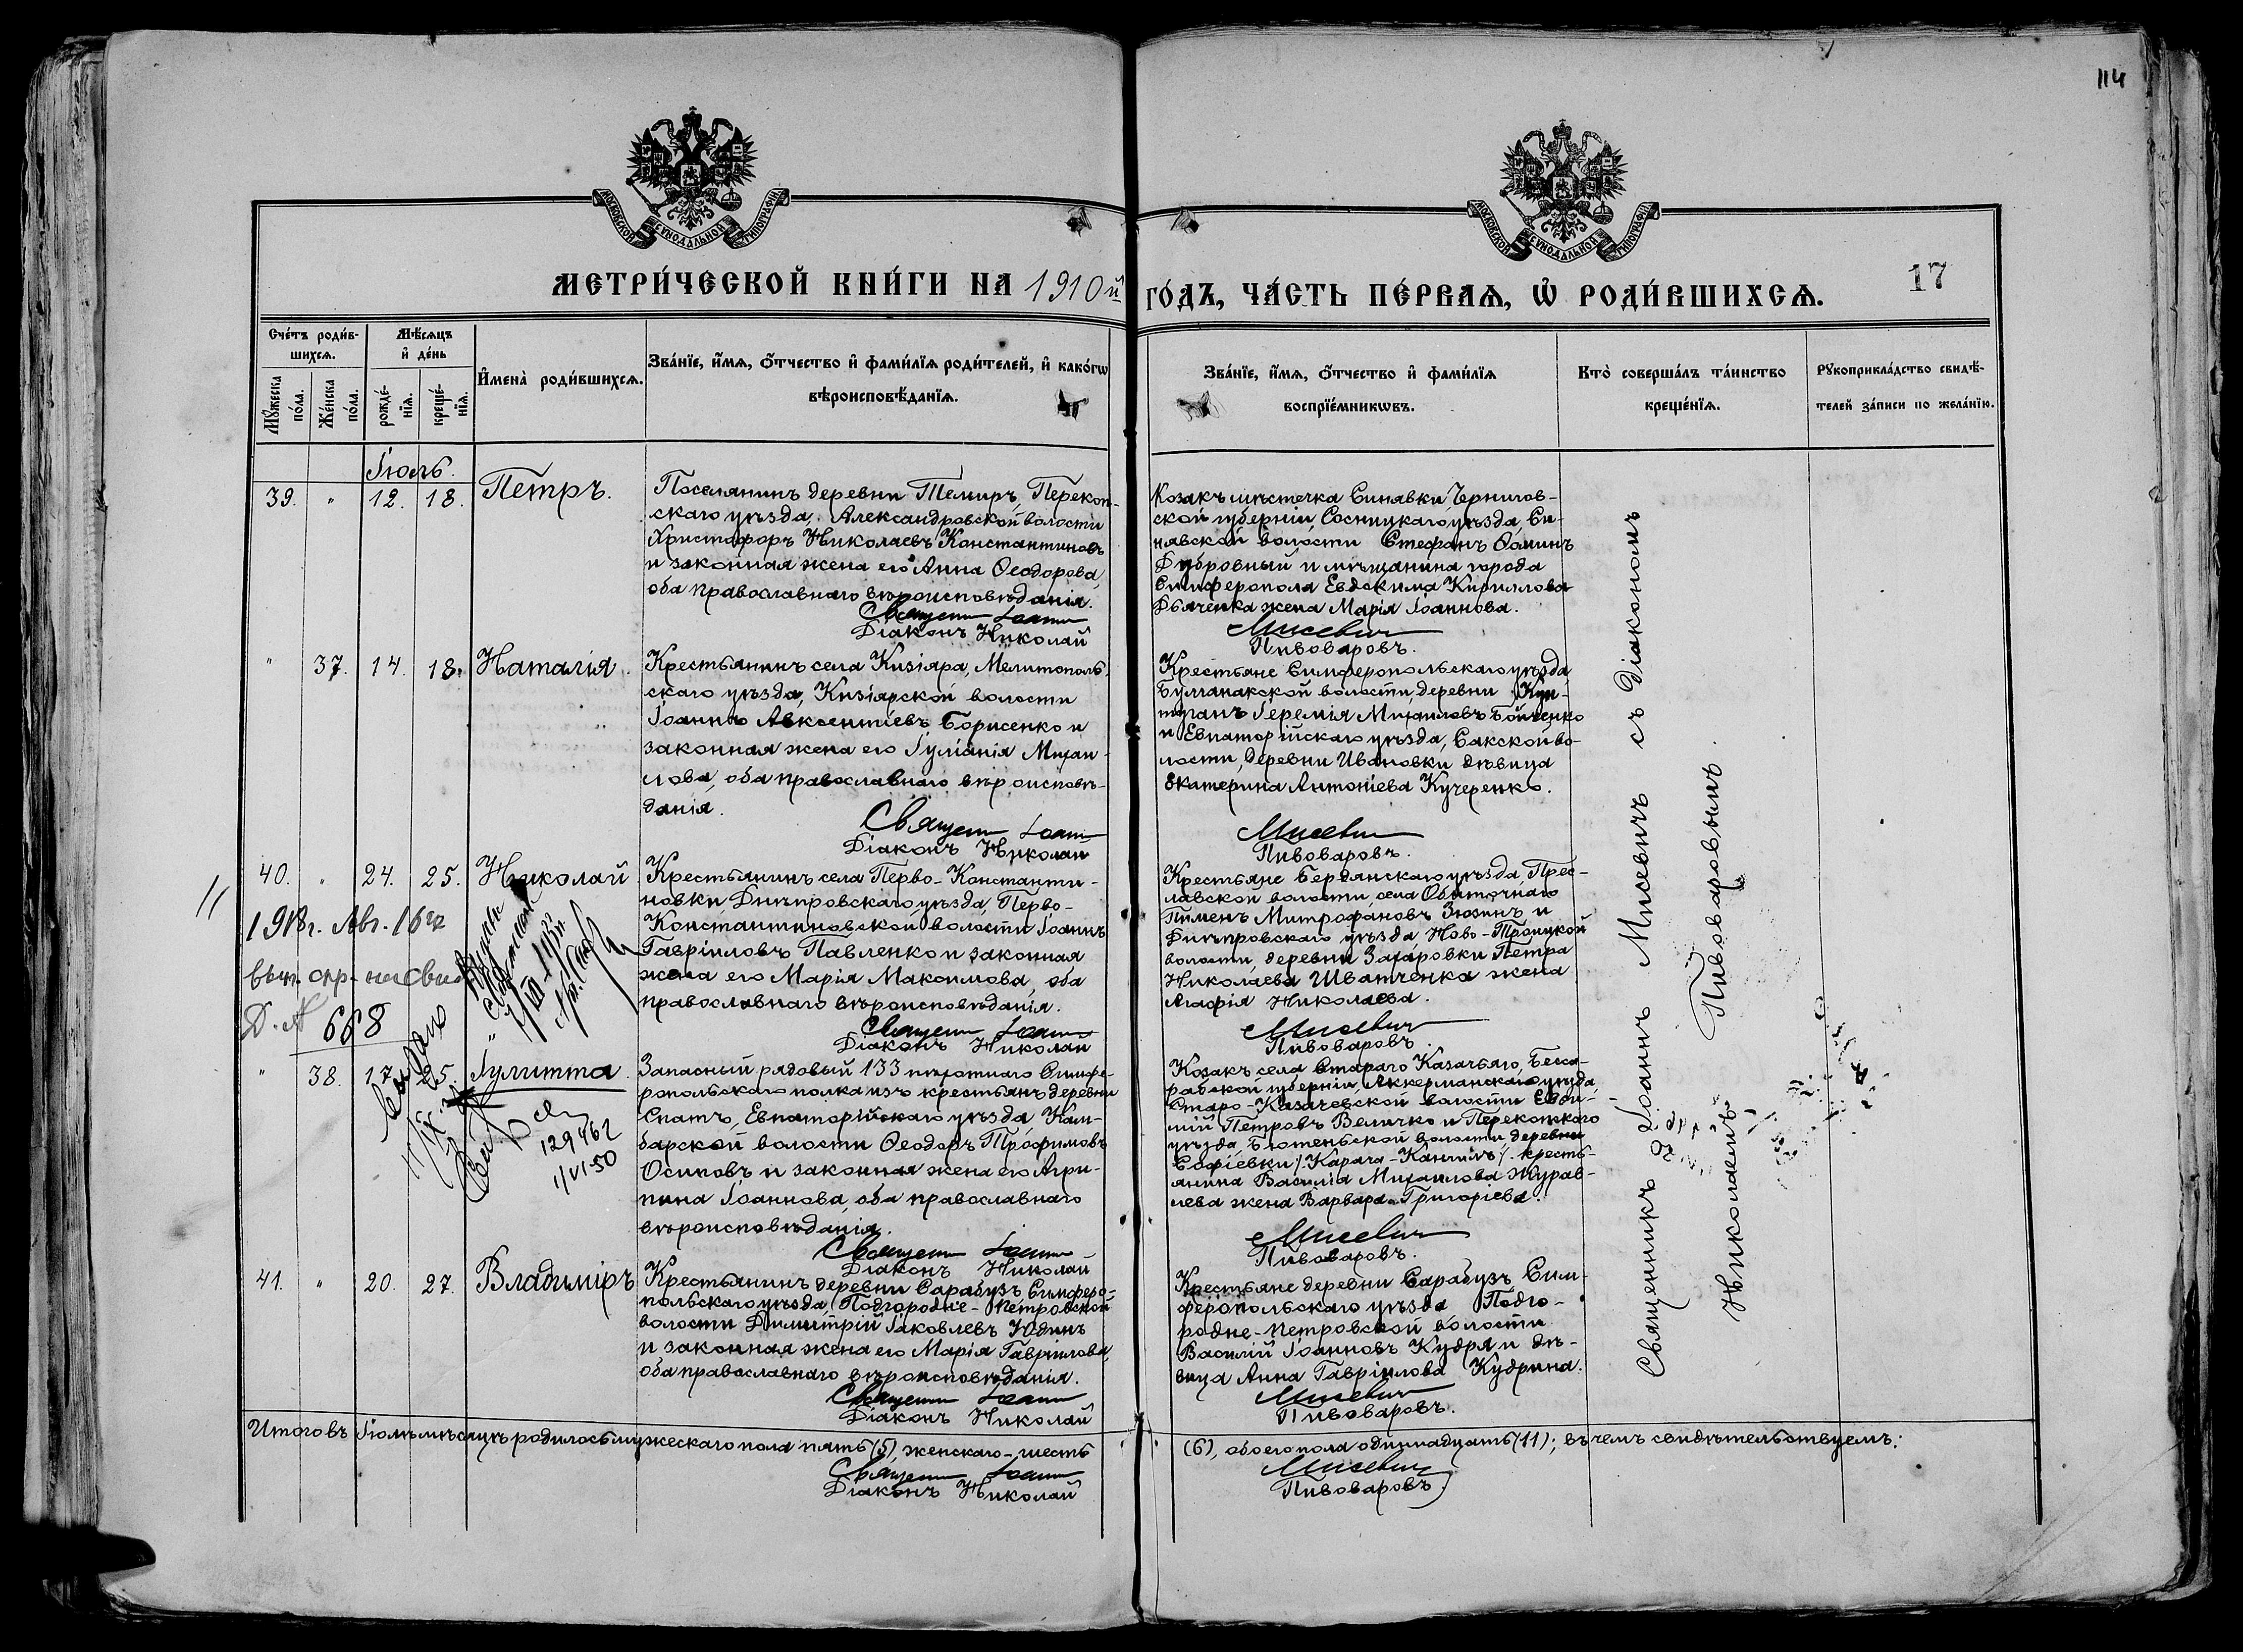 114
МОСКОВСКОЙ СѴНОДАЛЬНОЙ ТИПОГРАФІИ
МОСКОВСКОЙ СѴНОДАЛЬНОЙ ТИПОГРАФІИ
МЕТРИ́ЧЕСКОЙ КНИ́ГИ НА 1910й ГО́ДЪ, ЧА́СТЬ ПЕ́РВАѦ, Ѡ҆ РОДИ́ВШИХСѦ.
17
Сче́тъ роди́в-
шихсѧ.
Мꙋ́жеска по́ла.
Же́нска по́ла.
Мѣ́сѧцъ
и҆ де́нь
рожде́-
нїѧ.
креще́-
нїѧ.
И҆мена̀ роди́вшихсѧ.
Зва́нїе, и҆́мѧ, ѻ҆́тчество и҆ фами́лїѧ роди́телей, и҆ како́гѡ
вѣроисповѣ́данїѧ.
Зва́нїе, и҆́мѧ, ѻ҆́тчество и҆ фами́лїѧ
воспрїе́мникѡвъ.
Кто̀ соверша́лъ та́инство
креще́нїѧ.
Рꙋкоприкла́дство свидѣ́-
телей за́писи по жела́нїю.
Іюль.
39. " 12. 18. Петръ.
Поселянинъ деревни Темиръ, Перекоп-
скаго уѣзда, Александровской волости
Христофоръ Николаевъ Константиновъ
и законная жена его Анна Ѳеодорова,
оба православнаго вѣроисповѣданія.
Священн Іоанн
Діаконъ Николай
Козакъ мѣстечка Синявки, Чернигов-
ской губерніи, Сосницкаго уѣзда, Си-
нявской волости Стефанъ Ѳоминъ
Дубровный и мѣщанина города
Симферополя Евдокима Кириллова
Дьяченка жена Марія Іоаннова.
Мисевич
Пивоваровъ.
" 37. 14. 18. Наталія.
Крестьянинъ села Кизіяра, Мелитополь-
скаго уѣзда, Кизіярской волости
Іоаннъ Авксентіевъ Борисенко и
законная жена его Іуліанія Михаи-
лова, оба православнаго вѣроисповѣ-
данія.
Священн Іоанн
Діаконъ Николай
Крестьяне Симферопольскаго уѣзда
Булганакской волости, деревни Кун-
туганъ Іеремія Михаиловъ Бойченко
и Евпаторійскаго уѣзда, Сакской во-
лости, деревни Ивановки дѣвица
Екатерина Антоніева Кучеренко.
Мисевич
Пивоваровъ.
40. " 24. 25. Николай
Крестьянинъ села Перво-Константи-
новки Днѣпровскаго уѣзда, Перво-
Константиновской волости Іоаннъ
Гавріиловъ Павленко и законная
жена его Марія Максимова, оба
православнаго вѣроисповѣданія.
Священн Іоанн
Діаконъ Николай
Крестьяне Бердянскаго уѣзда, Прес-
лавской волости, села Обиточнаго
Пименъ Митрофановъ Зюзинъ и
Днѣпровскаго уѣзда, Ново-Троицкой
волости, деревни Захаровки Петра
Николаева Иванченка жена
Агафія Николаева.
Мисевич
Пивоваровъ.
1918г. Авг. 16го
668
" 38. 17. 25. Іулитта.
129462
1/VI-50
Запасный рядовый 133 пѣхотнаго Симфе-
ропольскаго полка изъ крестьянъ деревни
Спатъ, Евпаторійскаго уѣзда, Кам-
барской волости Ѳеодоръ Трофимовъ
Осиповъ и законная жена его Агри-
пина Іоаннова, оба православнаго
вѣроисповѣданія.
Священн Іоанн
Діаконъ Николай
Козакъ села Стараго Казачьяго, Бесса-
рабской губерніи, Аккерманскаго уѣзда,
Старо-Казачевской волости Евѳи-
мій Петровъ Величко и Перекопскаго
уѣзда, Бютеньской волости, деревни
Софіевки /Карача-Кангилъ/ кресть-
янина Василія Михаилова Журав-
лева жена Варвара Григоріева.
Мисевич
Пивоваровъ.
41. " 20. 27. Владиміръ
Крестьянинъ деревни Сарабузъ Симферо-
польскаго уѣзда, Подгородне-Петровской
волости Димитрій Іаковлевъ Юдинъ
и законная жена его Марія Гавріилова,
оба православнаго вѣроисповѣданія.
Священн Іоанн
Діаконъ Николай
Крестьяне деревни Сарабузъ Сим-
феропольскаго уѣзда Подго-
родне-Петровской волости
Василій Іоанновъ Кудря и дѣ-
вица Анна Гавріилова Кудрина.
Мисевич
Пивоваровъ.
Священникъ Іоаннъ Мисевичъ съ Діакономъ
Николаемъ Пивоваровымъ.
Итого въ Іюлѣ мѣсяцѣ родилось мужескаго пола пять (5), женскаго - шесть (6), обоего пола одиннадцать (11); въ чемъ свидѣтельствуемъ:
Священн Іоанн Мисевич
Діаконъ Николай Пивоваровъ.